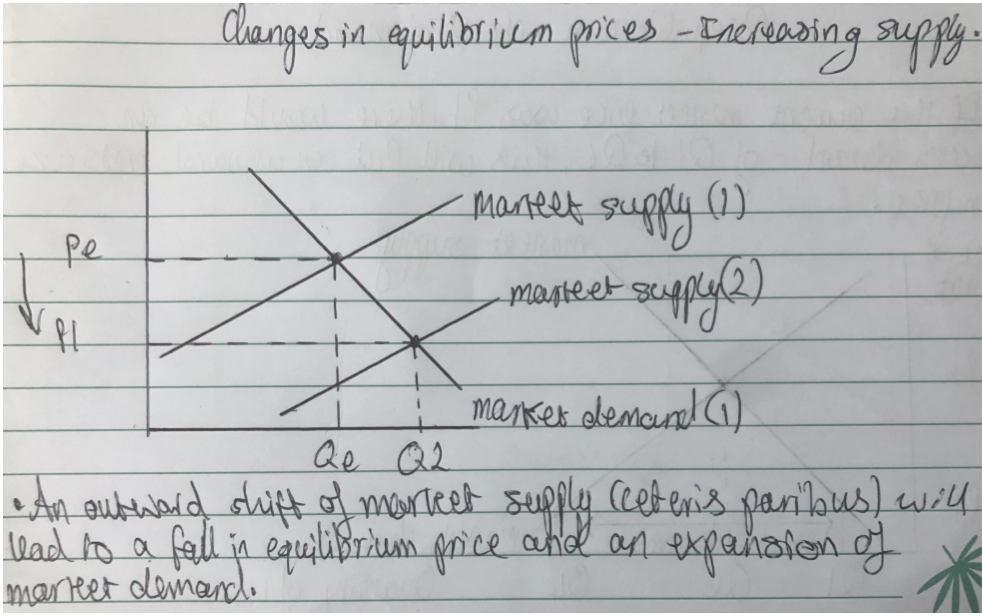 Changes in equilibrium prices - Increasing supply.
market supply (1)
Pe
market supply (2)
P1
market demand (1)
Qe Q2
• An outward shift of market supply (ceteris paribus) will
lead to a fall in equilibrium price and an expansion of
market demand.